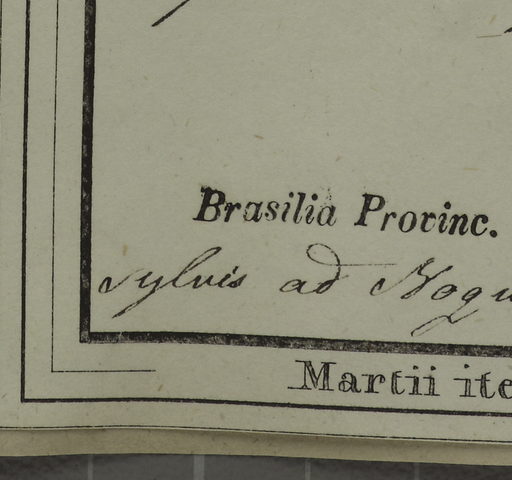 Brasilia Provinc.
sylvis ad
Martii